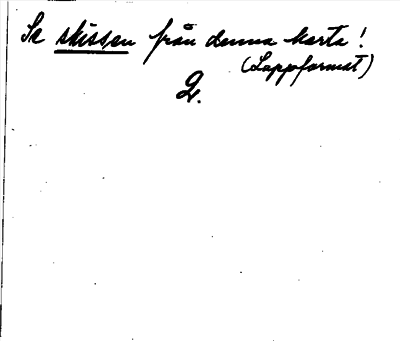 Se skissen från denna karta!
(Lappformat)
2.